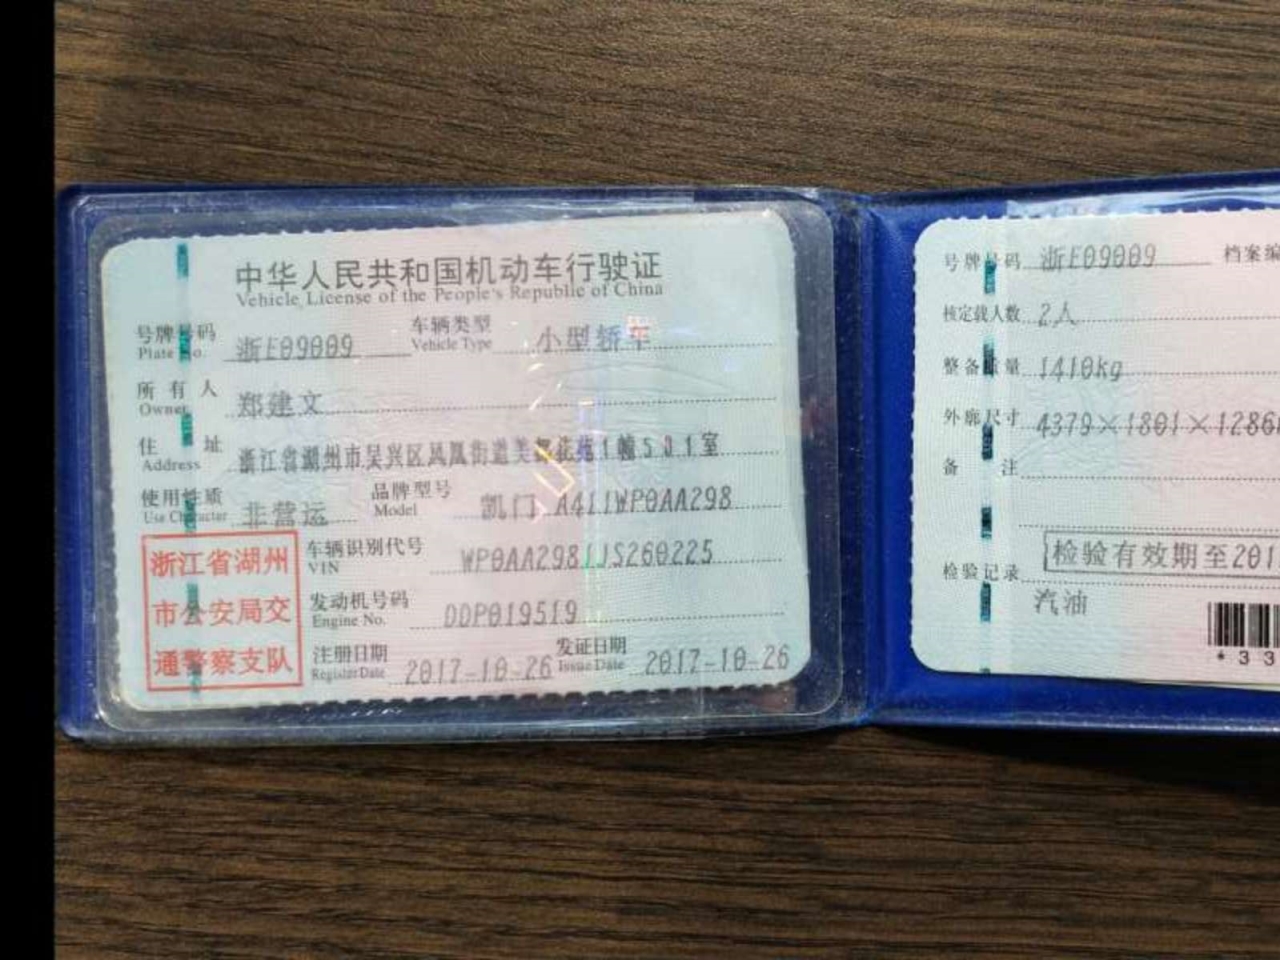 中华人民共和国机动车行驶证
Vehicle License of the People's Republic of China
号牌号码 浙E09009 车辆类型 小型轿车
Plate No. Vehicle Type
所有人 郑建文
Owner
住址 浙江省湖州市吴兴区凤凰街道美都花苑1幢501室
Address
使用性质 非营运 品牌型号 凯门 A411WP0AA298
Use Character Model
浙江省湖州
市公安局交
通警察支队
车辆识别代号 WP0AA2981JS260225
VIN
发动机号码 DDP019519
Engine No.
注册日期 2017-10-26 发证日期 2017-10-26
Register Date Issue Date
号牌号码 浙E09009 档案编
核定载人数 2人
整备质量 1410kg
外廓尺寸 4379×1801×1286
备注
检验有效期至201
检验记录
汽油
*33